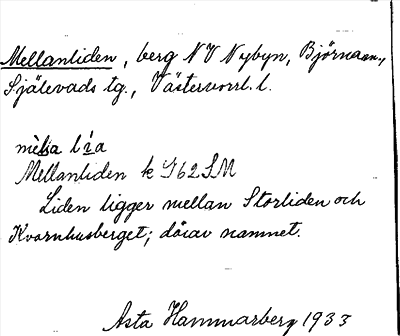 Mellanliden, berg NV Nybyn, Björnans,
Själevads tg., Västernorrl. l.
Mellanliden k J62SM
Liden ligger mellan Storliden och
Kvarnhusberget; därav namnet.
Asta Hammarberg 1933